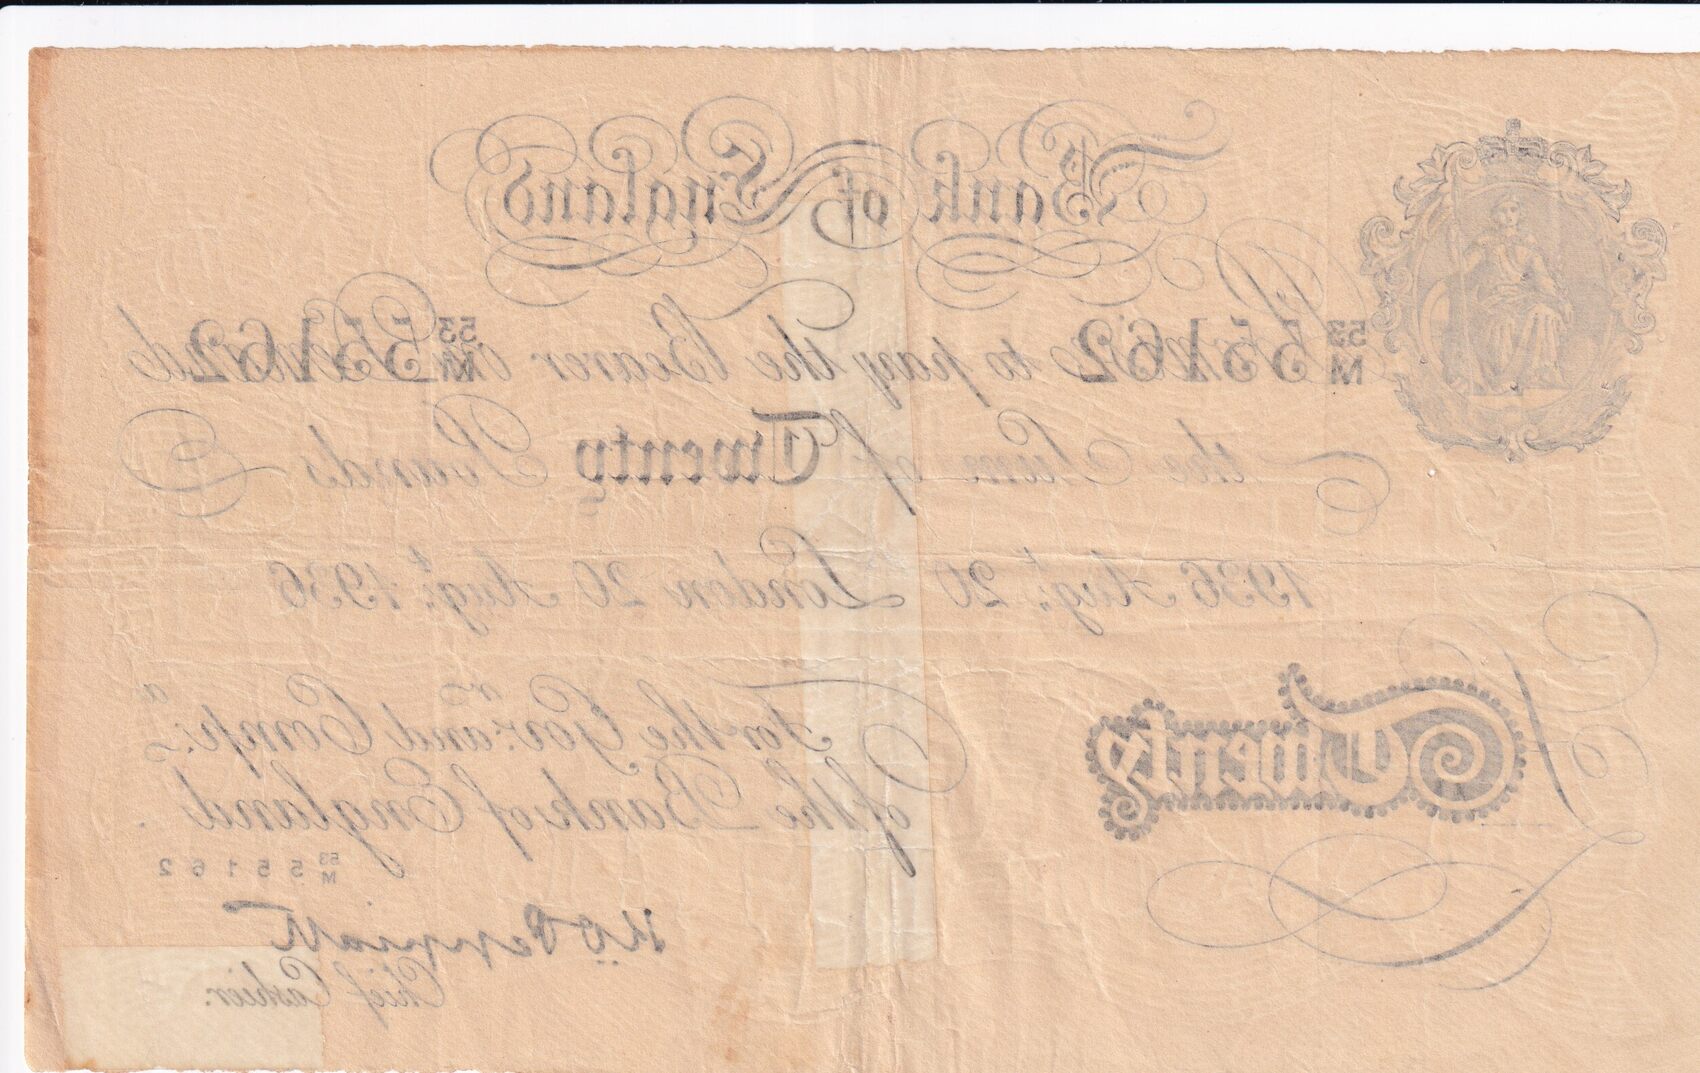 Bank of England
53/M 55162 I Promise to pay the Bearer on Demand 53/M 55162
the Sum of Twenty Pounds
1936 Augt. 20 London 20 Augt. 1936
For the Govr. and Compa.
of the Bank of England
Twenty
53/M 55162
K O Peppiatt
Chief Cashier.